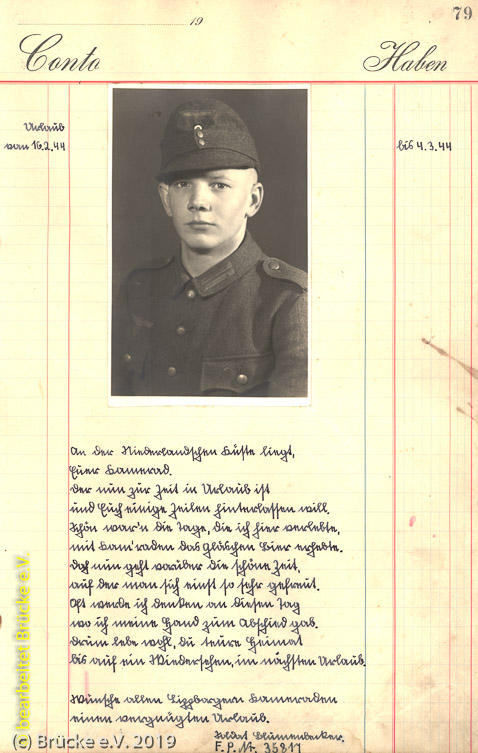 19
79
Conto
Haben
Urlaub
vom 16.2.44
bis 4.3.44
An der Niederlandschen Küste liegt,
Euer Kamerad.
Der nun zur Zeit in Urlaub ist
und Euch einige Zeilen hinterlassen will.
Schön war'n die Tage, die ich hier verlebte,
mit Kam'raden das Gläschen Bier erhebte.
Doch nun geht vorüber die schöne Zeit,
auf der man sich einst so sehr gefreut.
Oft werde ich denken an diesen Tag
wo ich meine Hand zum Abschied gab.
Drum lebe wohl, du teure Heimat
bis auf ein Wiedersehen, im nächsten Urlaub.
Wünsche allen Kameraden
einen vergnügten Urlaub.
Soldat Blumenbecker.
F.P.Nr. 36817
bearbeitet Brücke e.V.
(c) Brücke e.V. 2019